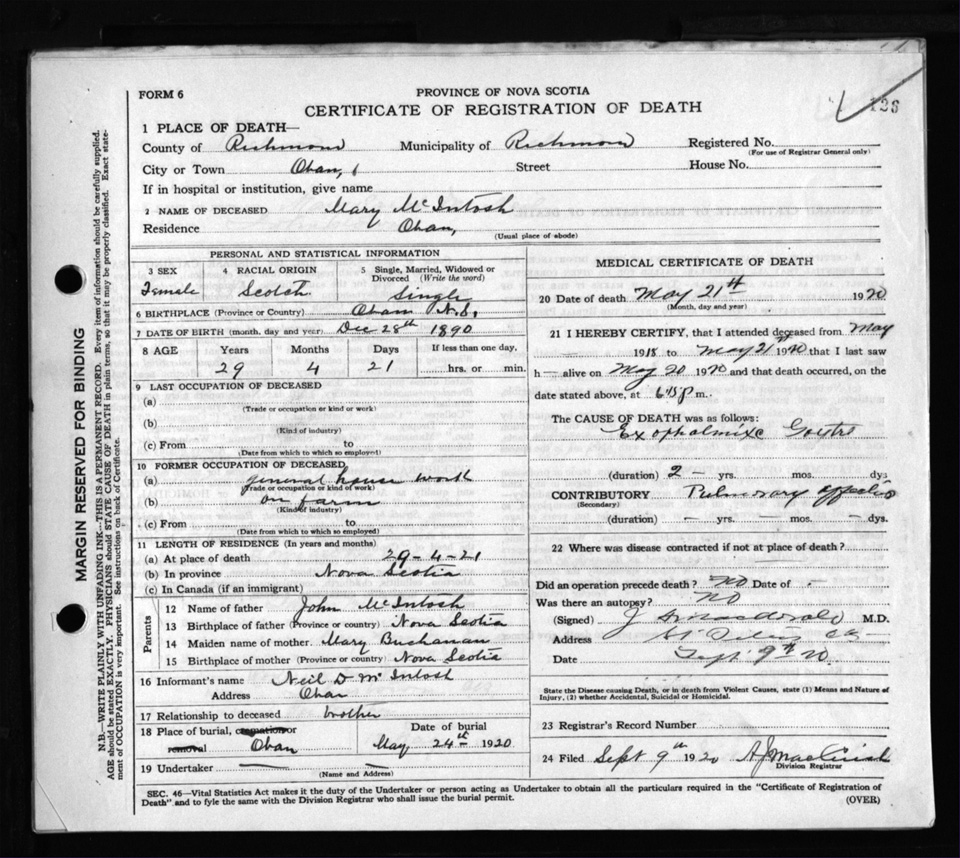 126
FORM 6
PROVINCE OF NOVA SCOTIA
CERTIFICATE OF REGISTRATION OF DEATH
1 PLACE OF DEATH—
County of Richmond Municipality of Richmond Registered No.
(For use of Registrar General only)
City or Town Oban, Street House No.
If in hospital or institution, give name
2 NAME OF DECEASED Mary McIntosh
Residence Oban,
(Usual place of abode)
PERSONAL AND STATISTICAL INFORMATION
3 SEX 4 RACIAL ORIGIN 5 Single, Married, Widowed or Divorced (Write the word)
Female Scotch Single
6 BIRTHPLACE (Province or Country) Oban N.S.
7 DATE OF BIRTH (month, day and year) Dec 28th 1890
8 AGE Years Months Days If less than one day,
29 4 21 hrs. or min.
9 LAST OCCUPATION OF DECEASED
(a)
(Trade or occupation or kind or work)
(b)
(Kind of industry)
(c) From to
(Date from which to which so employed)
10 FORMER OCCUPATION OF DECEASED
(a) general house work
(Trade or occupation or kind of work)
(b) on farm
(Kind of industry)
(c) From to
(Date from which to which so employed)
11 LENGTH OF RESIDENCE (In years and months)
(a) At place of death 29-4-21
(b) In province Nova Scotia
(c) In Canada (if an immigrant)
Parents
12 Name of father John McIntosh
13 Birthplace of father (Province or country) Nova Scotia
14 Maiden name of mother Mary Buchanan
15 Birthplace of mother (Province or country) Nova Scotia
16 Informant's name Neil D McIntosh
Address Oban
17 Relationship to deceased brother
18 Place of burial, cremation or removal Oban
Date of burial May 24th 1920
19 Undertaker —
(Name and Address)
MEDICAL CERTIFICATE OF DEATH
20 Date of death May 21st 1920
(Month, day and year)
21 I HEREBY CERTIFY, that I attended deceased from May
1918 to May 21st 1920 that I last saw
h— alive on May 20 1920 and that death occurred, on the
date stated above, at m.
The CAUSE OF DEATH was as follows:
Exopthalmixc Goytre
(duration) 2 - yrs. mos. dys
CONTRIBUTORY Pulmonary affection
(Secondary)
(duration) — yrs. — mos. — dys.
22 Where was disease contracted if not at place of death?
Did an operation precede death? No Date of -
Was there an autopsy? No
(Signed) M.D.
Address
Date Sept 9th 20
State the Disease causing Death, or in death from Violent Causes, state (1) Means and Nature of
Injury, (2) whether Accidental, Suicidal or Homicidal.
23 Registrar's Record Number
24 Filed Sept 9th 1920
Division Registrar
SEC. 46—Vital Statistics Act makes it the duty of the Undertaker or person acting as Undertaker to obtain all the particulars required in the "Certificate of Registration of
Death" and to fyle the same with the Division Registrar who shall issue the burial permit.
(OVER)
MARGIN RESERVED FOR BINDING
N.B.—WRITE PLAINLY WITH UNFADING INK—THIS IS A PERMANENT RECORD. Every item of information should be carefully supplied.
AGE should be stated EXACTLY. PHYSICIANS should STATE CAUSE OF DEATH in plain terms, so that it may be properly classified. Exact state-
ment of OCCUPATION is very important. See instructions on back of Certificate.